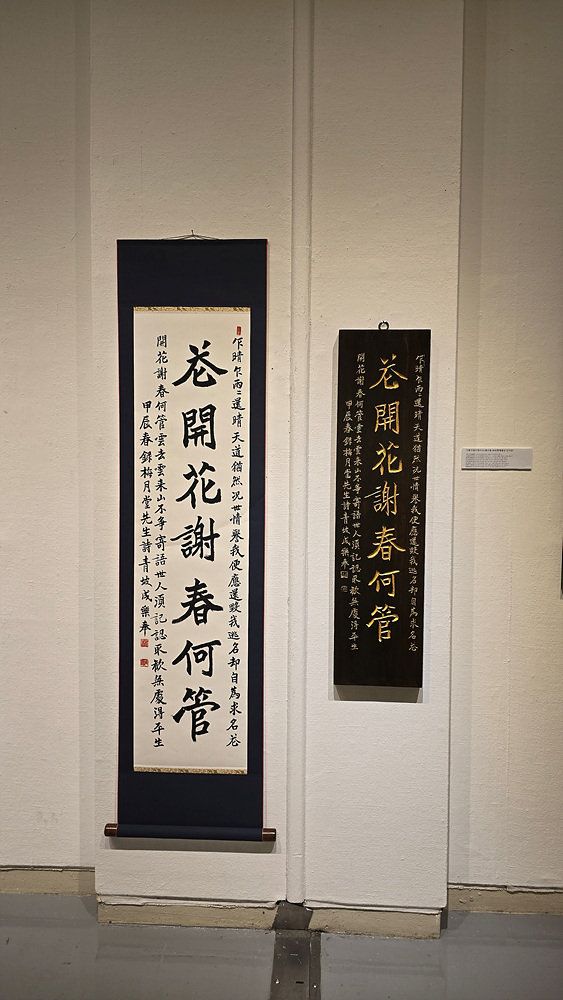 乍晴乍雨〻還晴天道猶然况世情譽我便應還毀我逃名却自爲求名芲
芲開花謝春何管
開花謝春何管雲去雲来山不爭寄語世人須記認取歡無處得平生
甲辰春錄梅月堂先生詩青坡成樂奉
乍晴乍雨〻還晴天道猶然况世情譽我便應還毀我逃名却自爲求名芲
芲開花謝春何管
開花謝春何管雲去雲来山不爭寄語世人須記認取歡無處得平生
甲辰春錄梅月堂先生詩青坡成樂奉